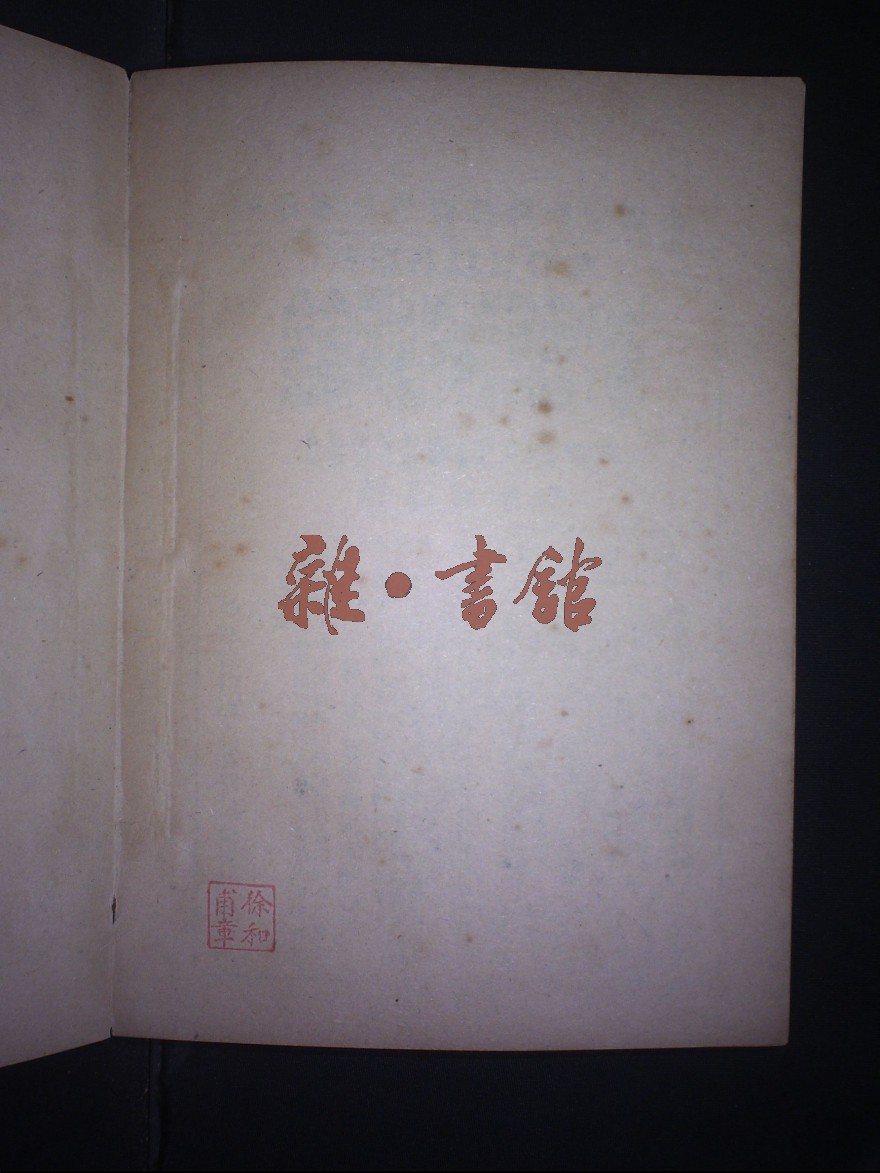 雜·書館
徐和甫章